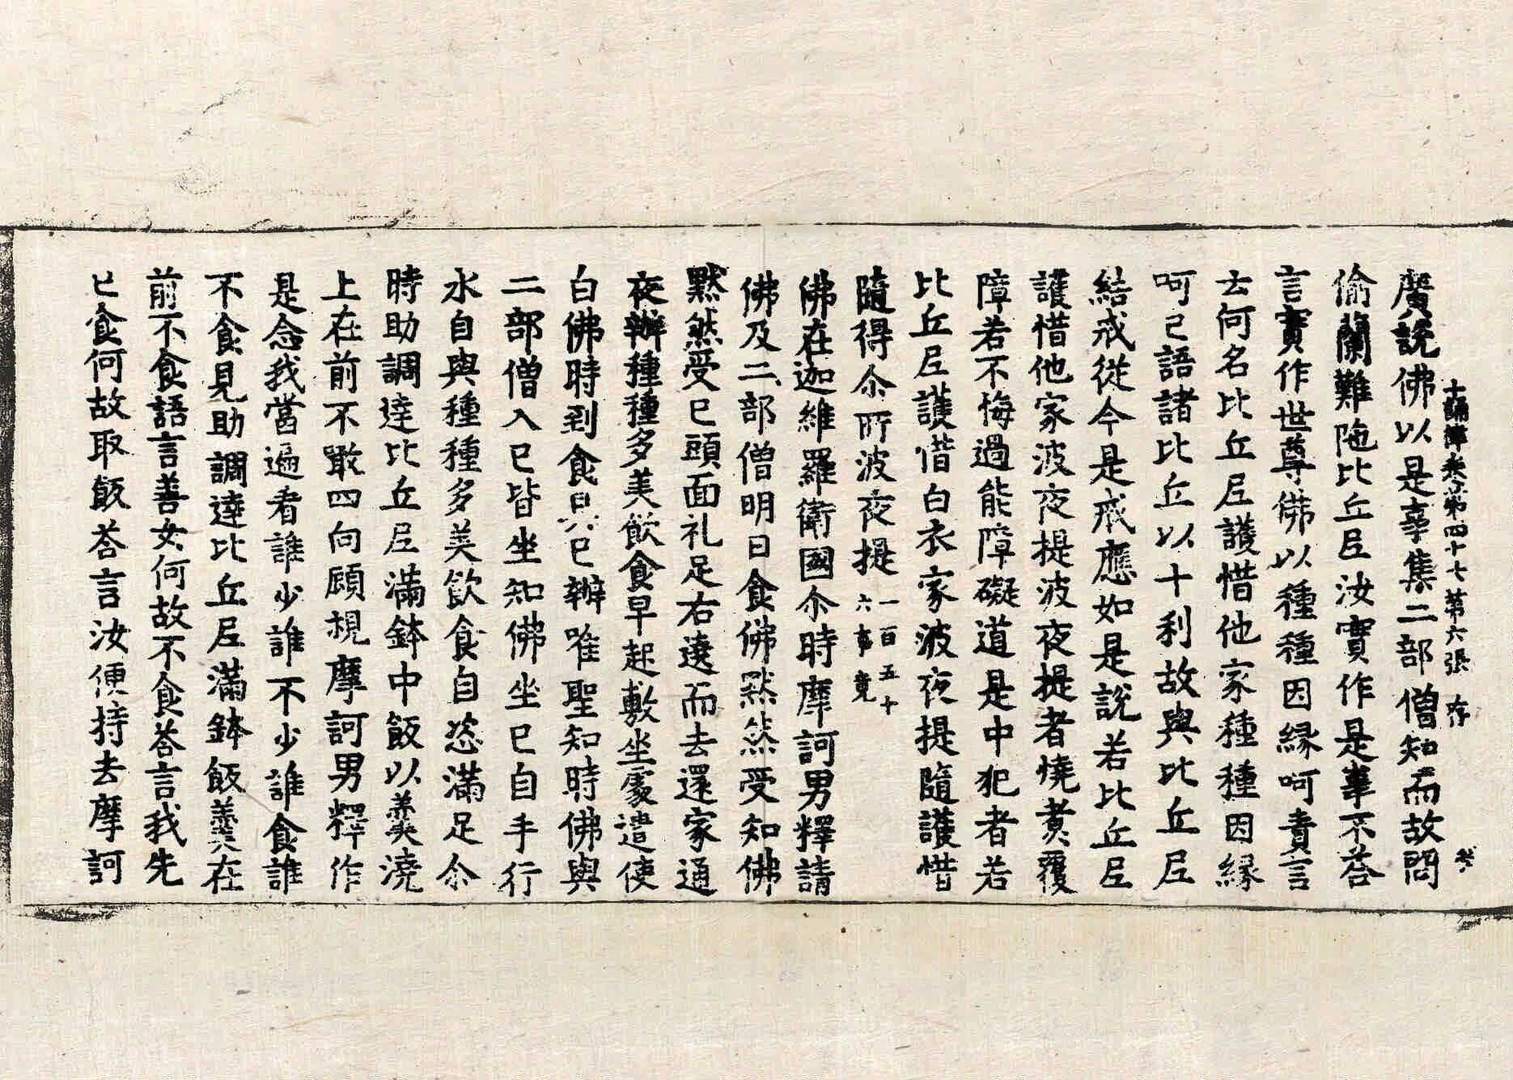 十誦律卷第四十七 第六張 存
廣說佛以是事集二部僧知而故問
偷蘭難陁比丘尼汝實作是事不荅
言實作世尊佛以種種因緣呵責言
云何名比丘尼護惜他家種種因緣
呵已語諸比丘以十利故與比丘尼
結戒從今是戒應如是說若比丘尼
護惜他家波夜提波夜提者燒煑覆
障若不悔過能障礙道是中犯者若
比丘尼護惜白衣家波夜提隨護惜
隨得尒所波夜提一百五十六事竟
佛在迦維羅衛國尒時摩訶男釋請
佛及二部僧明日食佛黙然受知佛
黙然受已頭面礼足右遶而去還家通
夜辦種種多美飲食早起敷坐處遣使
白佛時到食具已辦唯聖知時佛與
二部僧入已皆坐知佛坐已自手行
水自與種種多美飲食自恣滿足尒
時助調達比丘尼滿鉢中飯以羹澆
上在前不噉四向顧視摩訶男釋作
是念我當遍看誰少誰不少誰食誰
不食見助調達比丘尼滿鉢飯羹在
前不食語言善女何故不食荅言我先
已食何故取飯荅言汝便持去摩訶